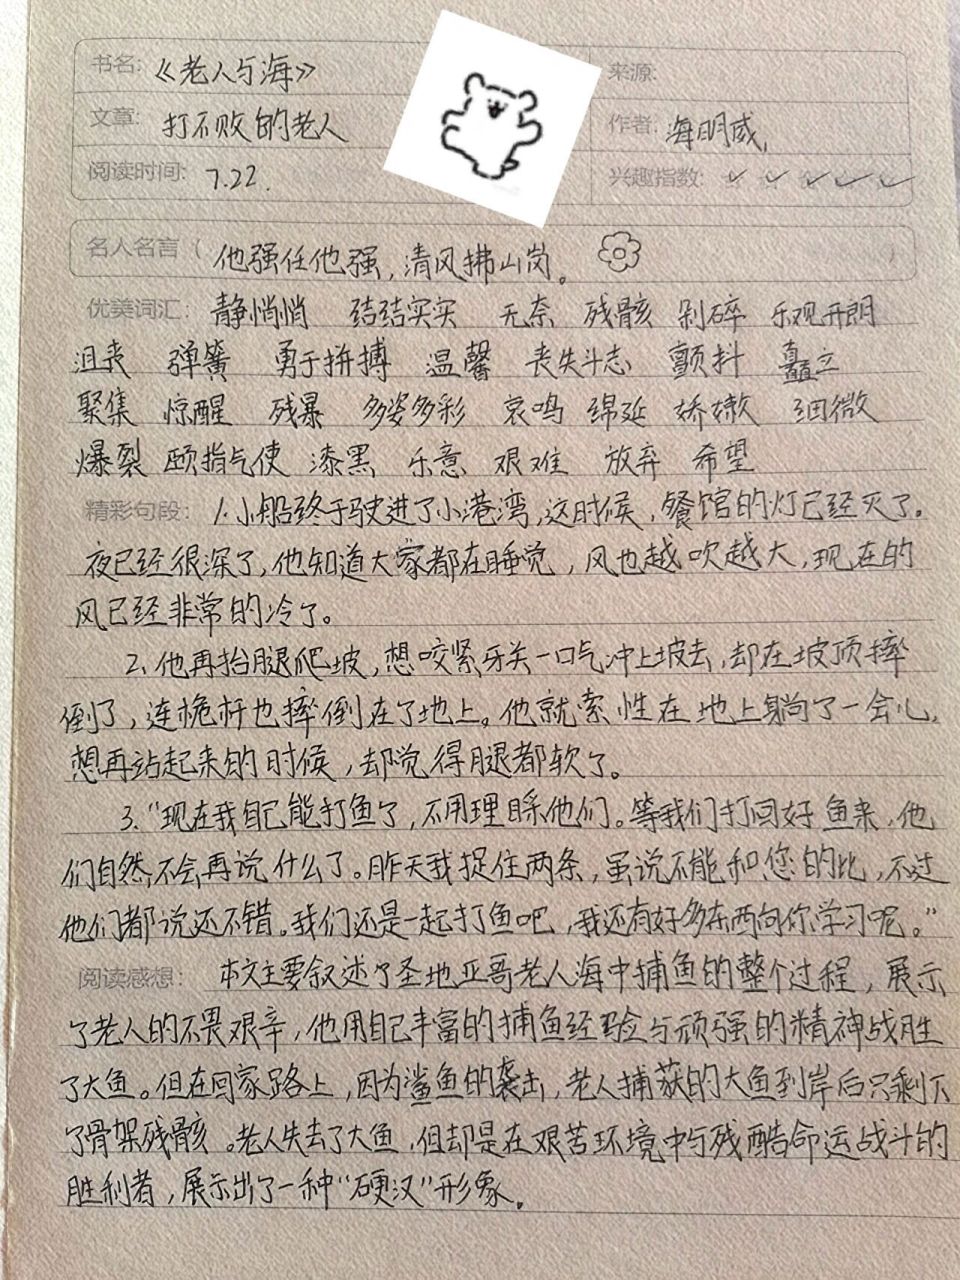 书名: 《老人与海》 来源:
文章: 打不败的老人 作者: 海明威
阅读时间: 7.22. 兴趣指数:
名人名言 ( 他强任他强，清风拂山岗。 )
优美词汇: 静悄悄 结结实实 无奈 残骸 剁碎 乐观开朗
沮丧 弹簧 勇于拼搏 温馨 丧失斗志 颤抖 矗立
聚集 惊醒 残暴 多姿多彩 哀鸣 绵延 娇嫩 细微
爆裂 颐指气使 漆黑 乐意 艰难 放弃 希望
精彩句段: 1.小船终于驶进了小港湾,这时候，餐馆的灯已经灭了。
夜已经很深了,他知道大家都在睡觉，风也越吹越大,现在的
风已经非常的冷了。
2.他再抬腿爬坡,想咬紧牙关一口气冲上坡去,却在坡顶摔
倒了,连桅杆也摔倒在了地上。他就索性在地上躺了一会儿,
想再站起来的时候,却觉得腿都软了。
3.“现在我自己能打鱼了,不用理睬他们。等我们打回好鱼来,他
们自然不会再说什么了。昨天我捉住两条,虽说不能和您的比,不过
他们都说还不错。我们还是一起打鱼吧,我还有好多东西向你学习呢。”
阅读感想: 本文主要叙述了圣地亚哥老人海中捕鱼的整个过程,展示
了老人的不畏艰辛,他用自己丰富的捕鱼经验与顽强的精神战胜
了大鱼。但在回家路上,因为鲨鱼的袭击,老人捕获的大鱼到岸后只剩下
了骨架残骸。老人失去了大鱼,但却是在艰苦环境中与残酷命运战斗的
胜利者,展示出了一种“硬汉”形象。